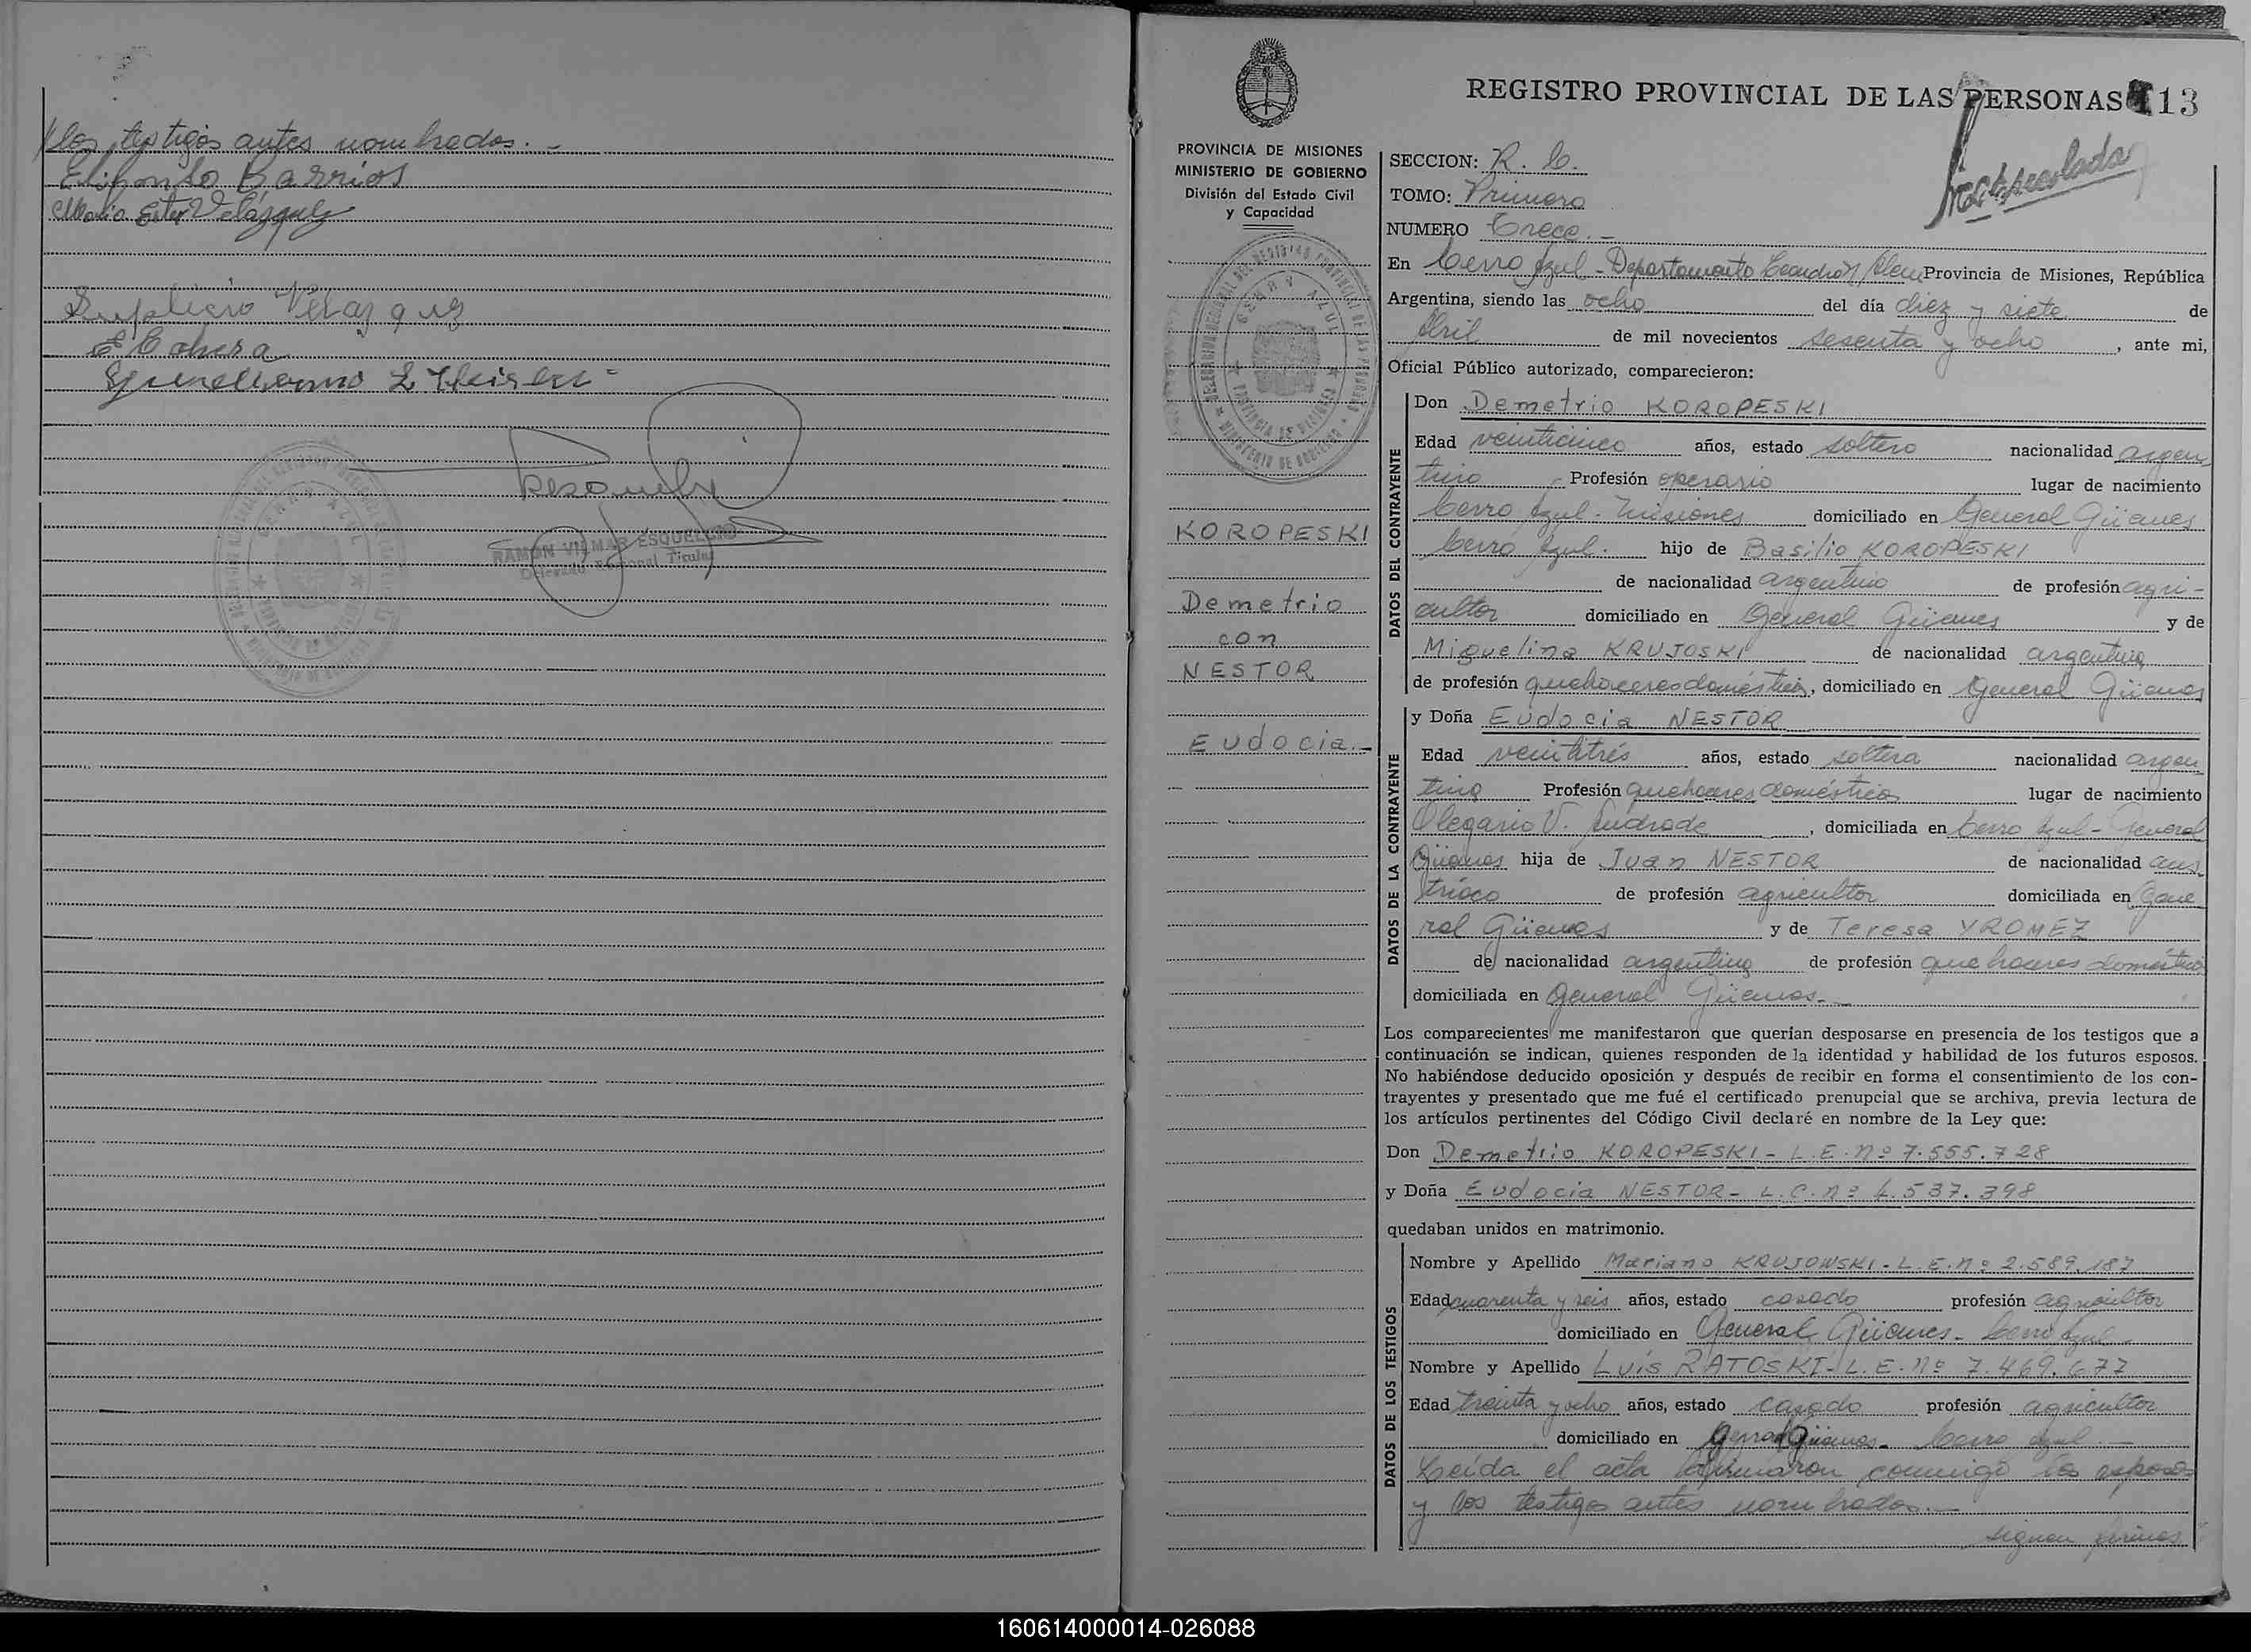 los testigos antes nombrados.-
Elifonso Barrios
Maria Ester Velázquez
Suplicio Velazquez
E Cabera
RAMON VILMAR ESQUELCHO
Delegado Regional Titular
REGISTRO PROVINCIAL DE LAS PERSONAS 13
PROVINCIA DE MISIONES
MINISTERIO DE GOBIERNO
División del Estado Civil
y Capacidad
KOROPESKI
Demetrio
con
NESTOR
Eudocia.-
SECCION: R. C.
TOMO: Primero
NUMERO Trece.-
En Cerro Azul - Departamento Leandro N. Alem Provincia de Misiones, República
Argentina, siendo las ocho del día diez y siete de
Abril de mil novecientos sesenta y ocho, ante mi,
Oficial Público autorizado, comparecieron:
DATOS DEL CONTRAYENTE
Don Demetrio KOROPESKI
Edad veinticinco años, estado soltero nacionalidad argen
tino Profesión operario lugar de nacimiento
Cerro Azul. Misiones domiciliado en General Güemes
Cerro Azul. hijo de Basilio KOROPESKI
de nacionalidad argentino de profesión agri-
cultor domiciliado en General Güemes y de
Miguelina KRUJOSKI de nacionalidad argentina
de profesión quehaceres domésticos, domiciliado en General Güemes
DATOS DE LA CONTRAYENTE
y Doña Eudocia NESTOR
Edad veintitrés años, estado soltera nacionalidad argen
tina Profesión quehaceres domésticos lugar de nacimiento
Olegario V. Andrade, domiciliada en Cerro Azul - General
Güemes hija de Juan NESTOR de nacionalidad aus
triaco de profesión agricultor domiciliada en Gene
ral Güemes y de Teresa YROMEZ
de nacionalidad argentina de profesión quehaceres domésticos
domiciliada en General Güemes.-
Los comparecientes me manifestaron que querían desposarse en presencia de los testigos que a
continuación se indican, quienes responden de la identidad y habilidad de los futuros esposos.
No habiéndose deducido oposición y después de recibir en forma el consentimiento de los con-
trayentes y presentado que me fué el certificado prenupcial que se archiva, previa lectura de
los artículos pertinentes del Código Civil declaré en nombre de la Ley que:
Don Demetrio KOROPESKI - L.E. nº 7.555.728
y Doña Eudocia NESTOR - L.C. nº 4.537.398
quedaban unidos en matrimonio.
DATOS DE LOS TESTIGOS
Nombre y Apellido Mariano KRUJOWSKI - L.E. nº 2.589.187
Edad cuarenta y seis años, estado casado profesión agricultor
domiciliado en General Güemes - Cerro Azul -
Nombre y Apellido Luis RATOSKI - L.E. nº 7.469.677
Edad treinta y ocho años, estado casado profesión agricultor
domiciliado en General Güemes - Cerro Azul.-
Leída el acta la firmaron conmigo los esposos
y los testigos antes nombrados.-
siguen firmas
160614000014-026088